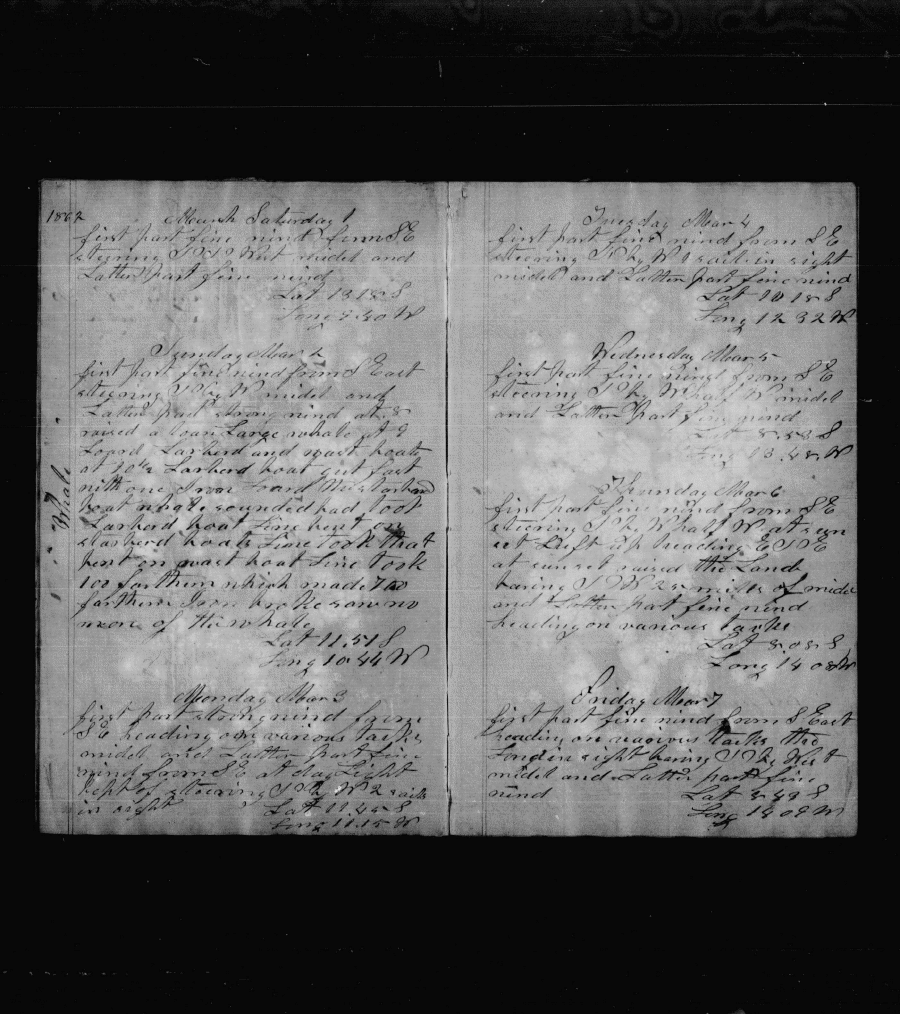 1862
March Saturday 1
first part fine wind from S E
steering S S West midel and
Latter part fine wind
Lat 13 18 S
Long 9 30 W
Sunday Mar 2
first part fine wind from S East
steering S by W midel and
Latter part strong wind at 8
raised a loan Large whale at 9
Loard Larberd and wast boats
at 10½ Larberd boat got fast
with one Iron Loard the starberd
boat whale sounded had took
Larberd boat Line bent on
starberd boats Line took that
bent on wast boat Line took
100 farthem which made 700
farthem Iron broke saw no
more of the whale
Lat 11.51 S
Long 10.44 W
Whale
Monday Mar 3
first part strong wind from
S E heading on various tacks
midel and Latter part fine
wind from S E at day Light
kept of steering S by W 2 sails
in sight
Lat 11.45 S
Long 11.15 W
Tuesday Mar 4
first part fine wind from S E
steering S by W 1 sail in sight
midel and Latter part fine wind
Lat 10 18 S
Long 12 32 W
Wednesday Mar 5
first part fine wind from S E
steering S by W half W midel
and Latter part fine wind
Lat 8.53 S
Long 13.48 W
Thursday Mar 6
first part fine wind from S E
steering S by W half W at sun
set Luft up heading E S E
at sunset raised the Land
baring S W 25 miles of midel
and Latter part fine wind
heading on various tacks
Lat 8.08 S
Long 14 08 W
Friday Mar 7
first part fine wind from S East
heading on various tacks the
Land in sight baring S by West
midel and Latter part fine
wind
Lat 8.49 S
Long 14 09 W